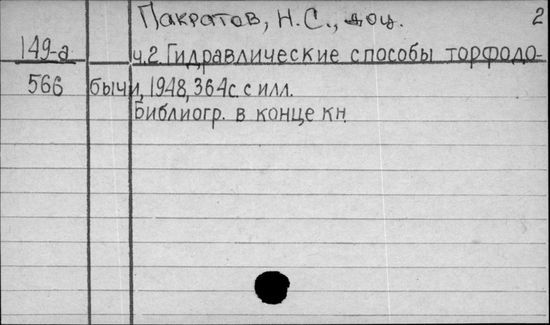 Пакратов, Н.С., доц. 2
149-а ч.2. Гидравлические способы торфодо-
566 бычи, 1948, 364с. с илл.
Библиогр. в конце кн.